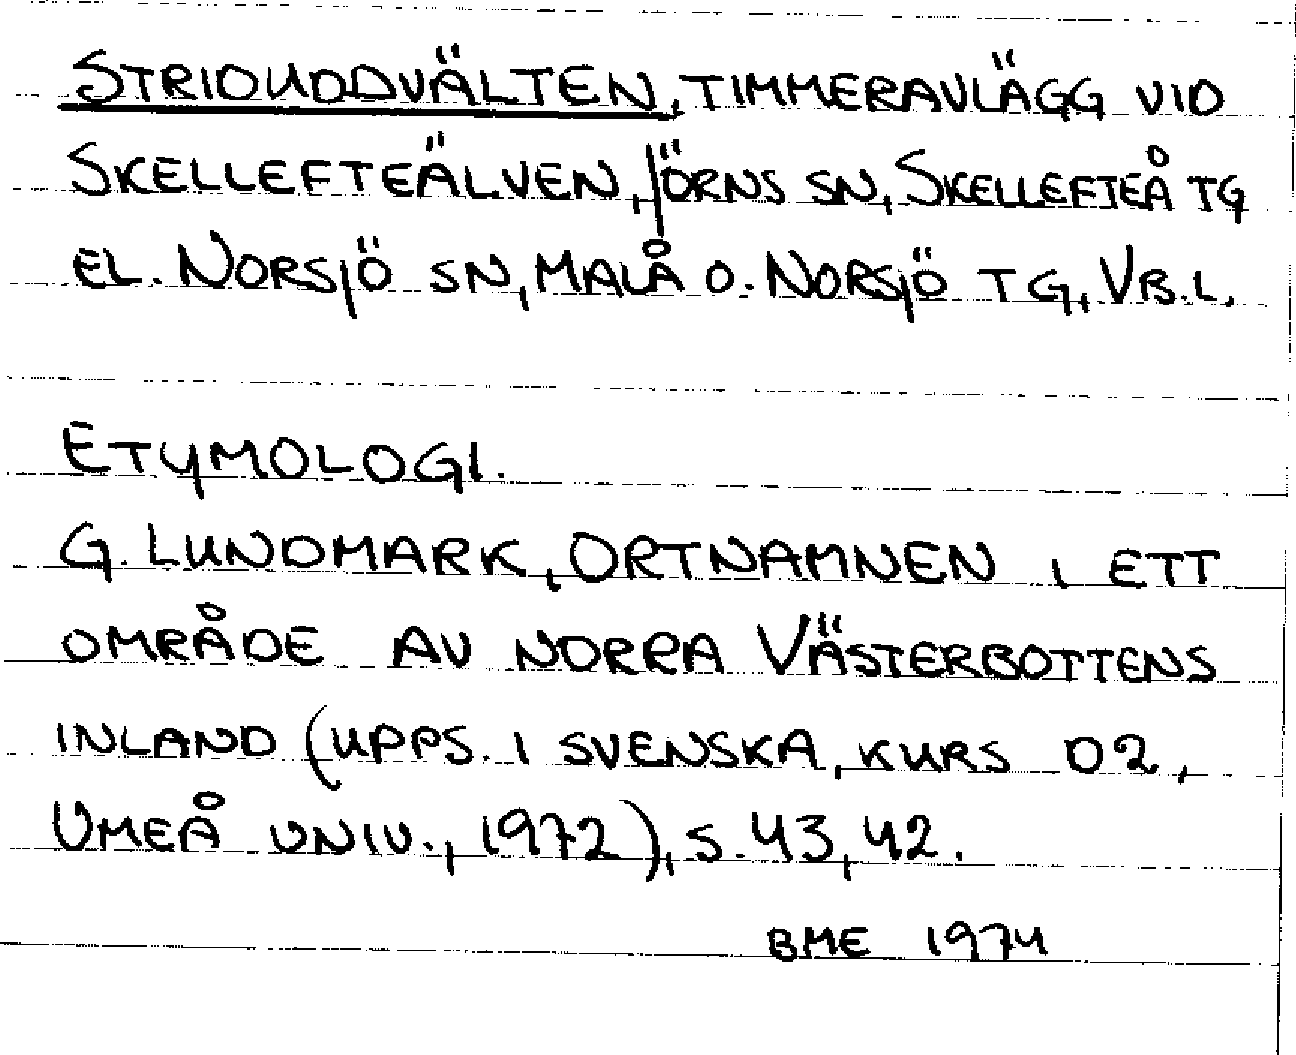 STRIDUDDVÄLTEN, TIMMERAVLÄGG VID
SKELLEFTEÄLVEN, JÖRNS SN, SKELLEFTEÅ TG
EL. NORSJÖ SN, MALÅ O. NORSJÖ TG, VB.L.
ETYMOLOGI.
G. LUNDMARK, ORTNAMNEN I ETT
OMRÅDE AV NORRA VÄSTERBOTTENS
INLAND (UPPS. I SVENSKA, KURS D2,
UMEÅ UNIV., 1972), S. 43, 42.
BME 1974